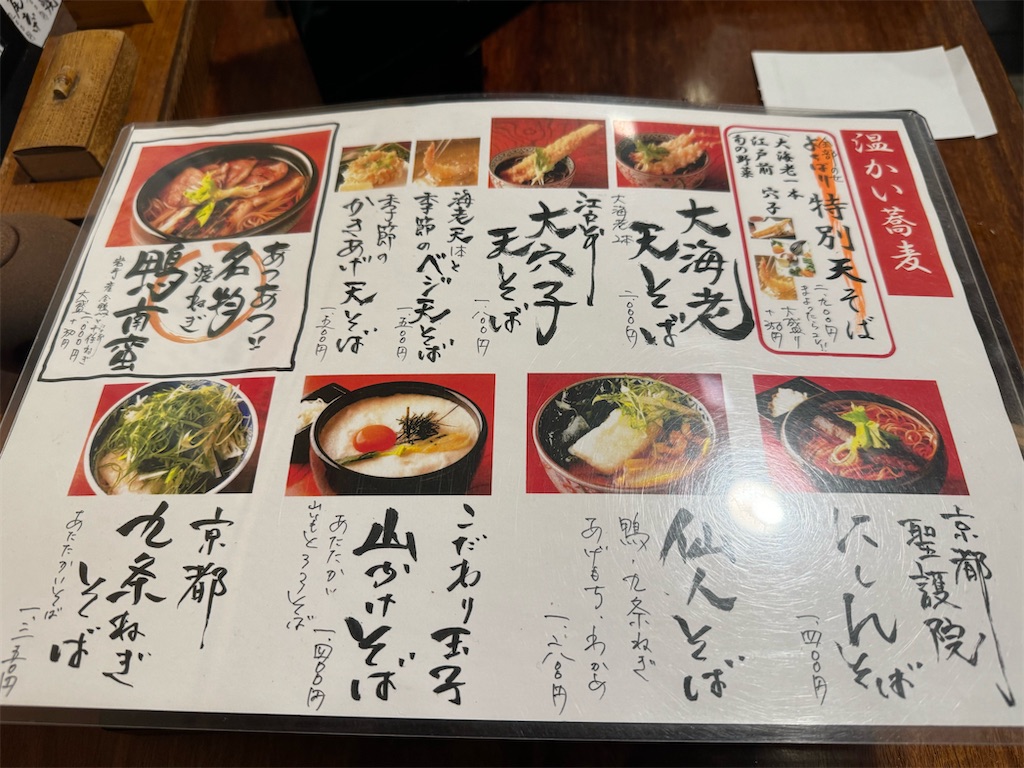 温かい蕎麦
特別天そば
大海老一本
江戸前 穴子
旬の野菜
二、九〇〇円
大盛り
+350円
大海老
天そば
大海老2本
二、〇〇〇円
江戸前
大穴子
天そば
一、八〇〇円
海老天1本と
季節のベジ天そば
一、五〇〇円
季節の
かきあげ天そば
一、五〇〇円
あつあつ!!
名物
鴨南蛮
大盛
+350円
京都
聖護院
にしんそば
一、四〇〇円
仙人そば
鴨・九条ねぎ
あげもち・わかめ
一、二八〇円
こだわり玉子
山かけそば
あたたかい
山いもとろろそば
一、四〇〇円
京都
九条ねぎ
そば
あたたかいそば
一、三一五〇円